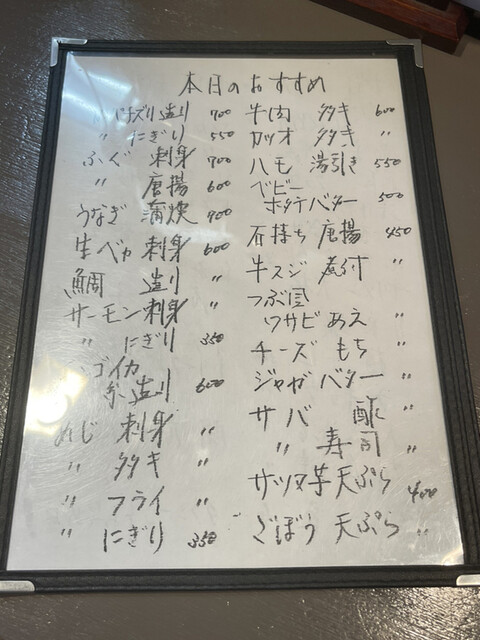 本日のおすすめ
〃 けずり 造り 700
〃 にぎり 550
ふぐ 刺身 700
〃 唐揚 600
うなぎ 蒲焼 900
生ベカ 刺身 600
鯛 造り 〃
サーモン 刺身 〃
〃 にぎり 350
イカ
糸造り 600
めじ 刺身 〃
〃 タタキ 〃
〃 フライ 〃
〃 にぎり 350
牛肉 タタキ 600
カツオ タタキ 〃
ハモ 湯引き 550
ベビー
ホタテバター 500
石持ち 唐揚 450
牛スジ 煮付 〃
つぶ貝
ワサビあえ 〃
チーズ もち 〃
ジャガバター 〃
サバ 酢 〃
〃 寿司 〃
サツマ芋天ぷら 400
ごぼう 天ぷら 〃